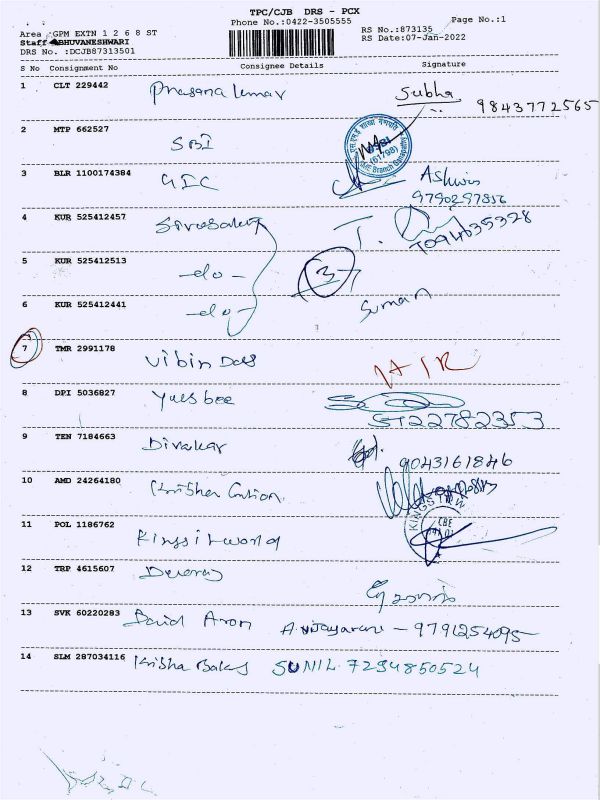 TPC/CJB DRS - PCX
Phone No.:0422-3505555
Page No.:1
Area :GPM EXTN 1 2 6 8 ST
RS No.:873135
Staff :BHUVANESHWARI
RS Date:07-Jan-2022
DRS No. :DCJB87313501
S No Consignment No Consignee Details Signature
1 CLT 229442 Prasanakumar Subha 9843772565
2 MTP 662527 SBI
(61798)
3 BLR 1100174384 GIC Ashwin
9790297856
4 KUR 525412457 T.
5 KUR 525412513 -do- 3
6 KUR 525412441 -do- Suman
7 TMR 2991178 Vibin Dass
8 DPI 5036827 Yuesbee
9 TEN 7184663 Divakar 9043161846
10 AMD 24264180 Krisha
11 POL 1186762
12 TRP 4615607 Devaraj
13 SVK 60220283 David Aron A. Vijayarani - 9791254095
14 SLM 287034116 Krisha Bakes SUNIL 7294850524